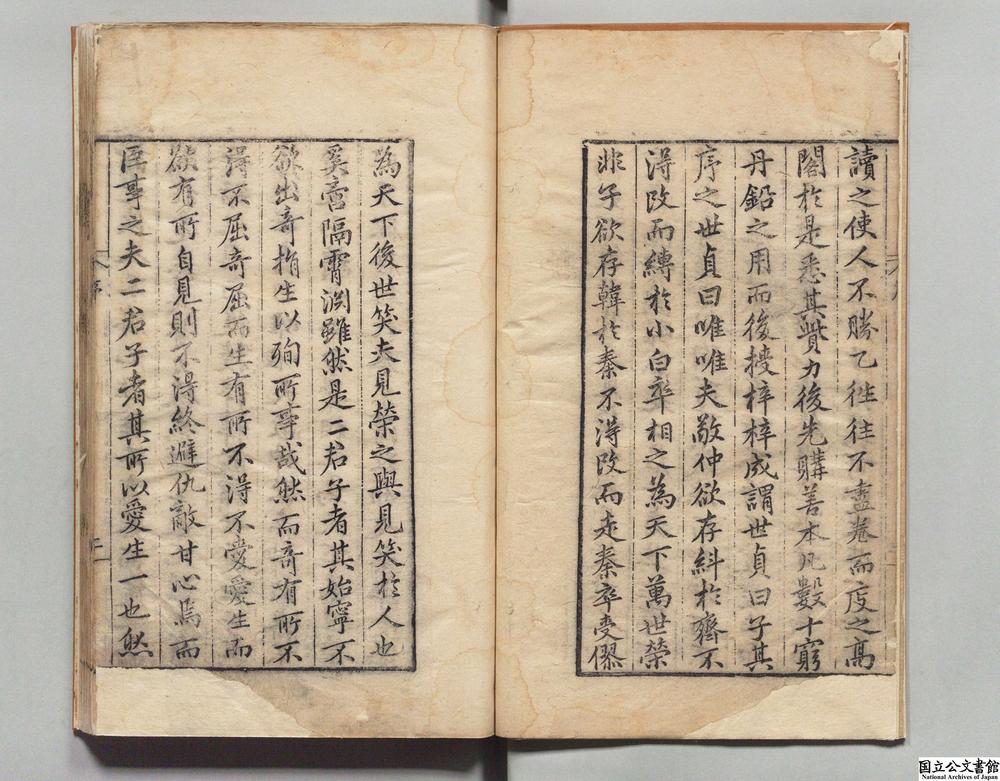 讀之使人不勝乙徃往不盡卷而庋之高
閣於是悉其貲力後先購善本凡數十窮
丹鉛之用而後授梓梓成謂世貞曰子其
序之世貞曰唯唯夫敬仲欲存糾於齊不
得改而縳於小白卒相之為天下萬世榮
非子欲存韓於秦不得改而走秦卒受僇
為天下後世笑夫見榮之與見笑於人也
奚啻隔霄淵雖然是二君子者其始寧不
欲出奇捐生以殉所事哉然而奇有所不
得不屈奇屈而生有所不得不愛愛生而
欲有所自見則不得終避仇敵甘心焉而
臣事之夫二君子者其所以愛生一也然
序
二
国立公文書館
National Archives of Japan